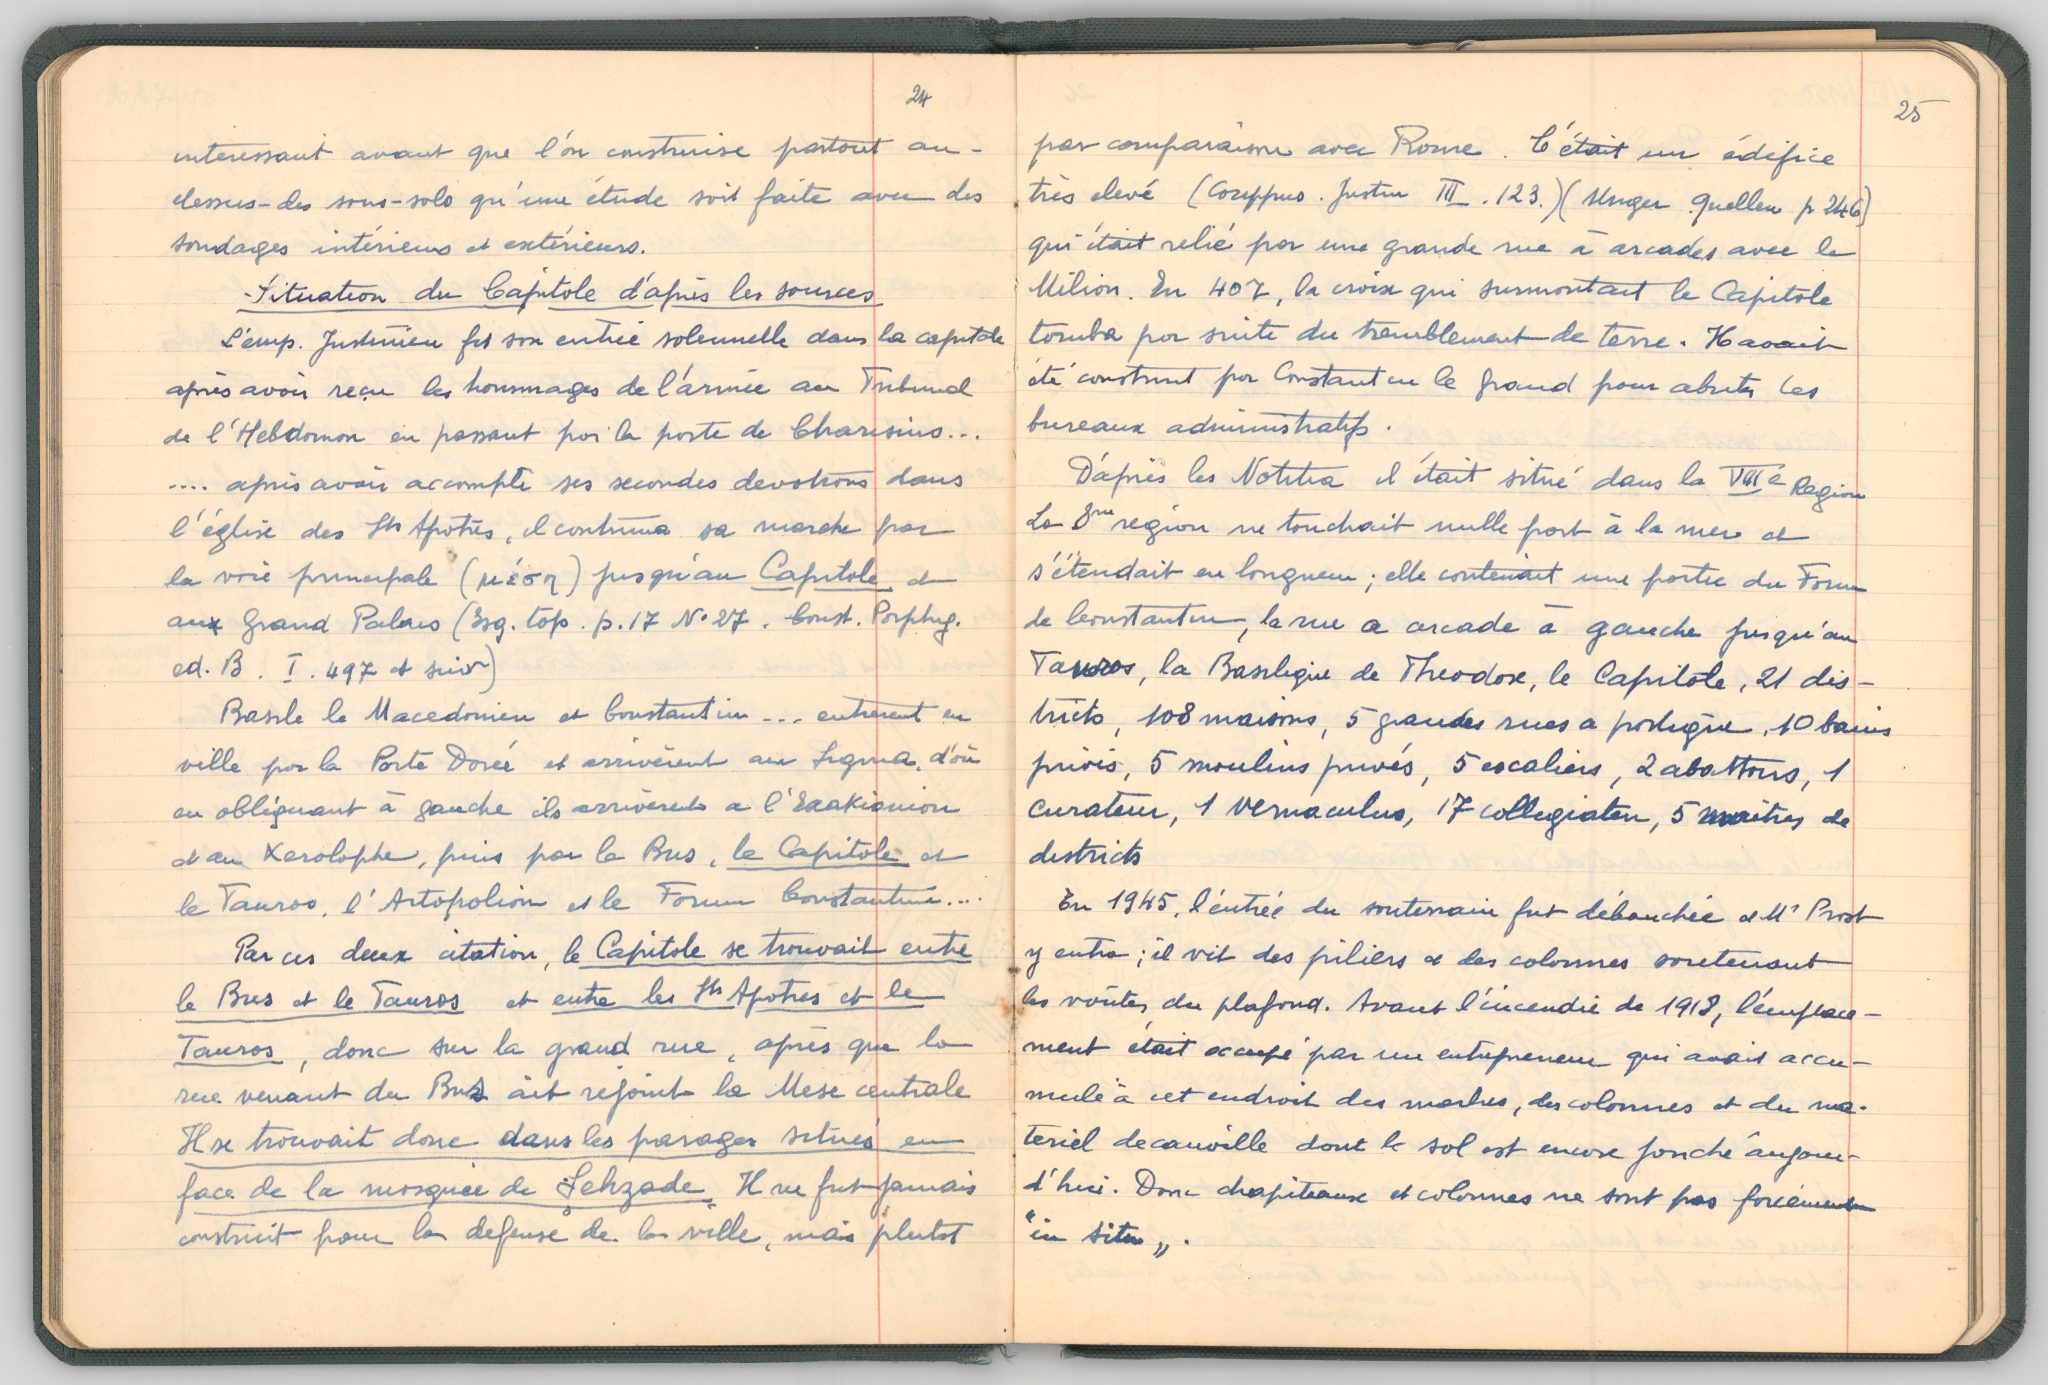 24
interessant avant que l'on construise partout au-
dessus-des sous-sols qu'une étude soit faite avec des
sondages intérieurs et extérieurs.
Situation du Capitole d'après les sources
L'emp. Justinien fit son entrée solennelle dans la capitale
après avoir reçu les hommages de l'armée au Tribunal
de l'Hebdomon en passant par la porte de Charisius...
.... après avoir accompli ses secondes devotions dans
l'église des Sts Apôtres, il continua sa marche par
la voie principale (μέση) jusqu'au Capitole et
aux Grand Palais (Esq. top. p.17 No 27. Const. Porphyg.
ed. B. I. 497 et suiv)
Basile le Macedonien et Constantin ... entrerent en
ville par la Porte Dorée et arrivèrent au Sigma, d'où
en obliquant à gauche ils arrivèrent a l'Exakionion
et au Xerolophe, puis par le Bus, le Capitole et
le Tauros, l'Artopolion et le Forum Constantini....
Par ces deux citation, le Capitole se trouvait entre
le Bus et le Tauros et entre les Sts Apotres et le
Tauros, donc sur la grand rue, après que la
rue venant du Bus ait rejoint la Mese centrale
Il se trouvait donc dans les parages situés en
face de la mosquée de Şehzade. Il ne fut jamais
construit pour la defense de la ville, mais plutot
25
par comparaison avec Rome. C'était un édifice
très elevé (Corippus. Justin III. 123.) (Unger Quellen p 246)
qui était relié par une grande rue à arcades avec le
Milion. En 407, la croix qui surmontait le Capitole
tomba par suite du tremblement de terre. Il avait
été construit par Constantin le Grand pour abriter les
bureaux administratifs.
D'après les Notitia il était situé dans la VIIIe Region
La 8me region ne touchait nulle part à la mer et
s'étendait en longueur; elle contenait une partie du Forum
de Constantin, la rue a arcade à gauche jusqu'au
Tauros, la Basilique de Theodose, le Capitole, 21 dis-
tricts, 108 maisons, 5 grandes rues a portique, 10 bains
privés, 5 moulins privés, 5 escaliers, 2 abattoirs, 1
curateur, 1 vernaculus, 17 collegiaten, 5 maitres de
districts
En 1945, l'entrée du souterrain fut débouchée et Mr Prost
y entra; il vit des piliers et des colonnes soutenant
les voûtes du plafond. Avant l'incendie de 1918, l'emplace-
ment était occupé par un entrepreneur qui avait accu-
mulé à cet endroit des marbres, des colonnes et du ma-
teriel decauville dont le sol est encore jonché aujour-
d'hui. Donc chapiteaux et colonnes ne sont pas forcément
"in situ".